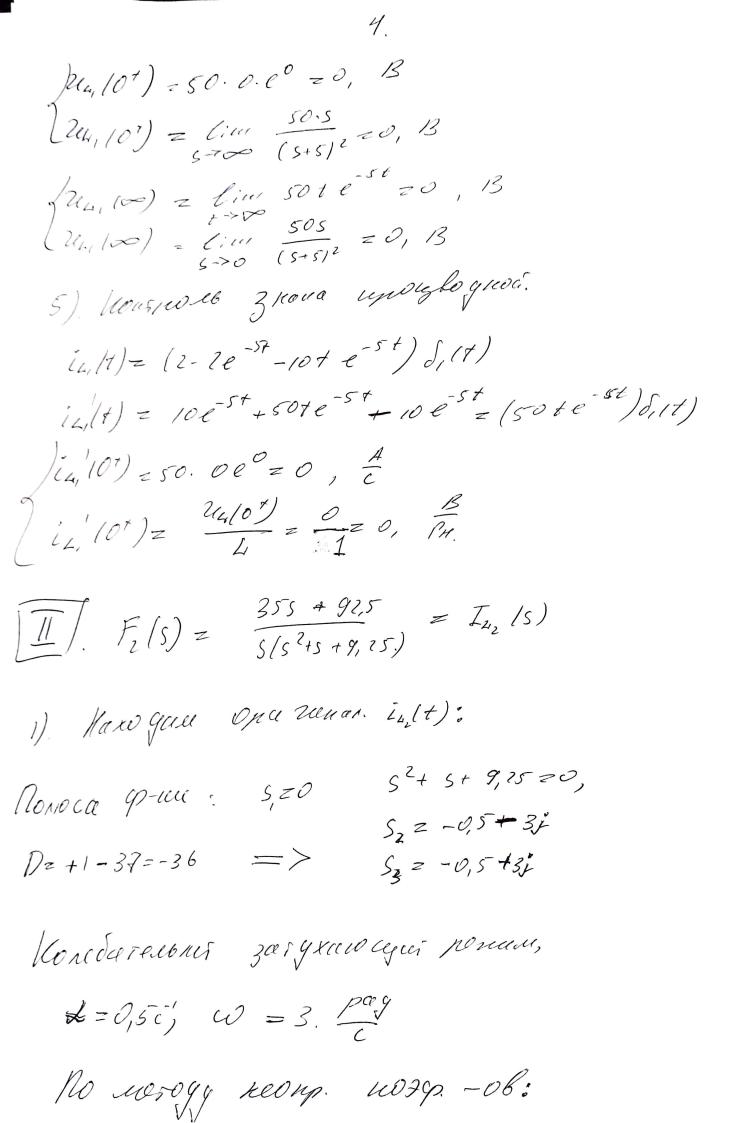 4.
u_{L1}(0⁺) = 50 · 0 · e⁰ = 0, В
u_{L1}(0⁺) = lim_{s→∞} 50·s/(s+5)² = 0, В
u_{L1}(∞) = lim_{t→∞} 50t e^{-5t} = 0, В
u_{L1}(∞) = lim_{s→0} 50s/(s+5)² = 0, В
5). Контроль знака производной.
i_{L1}(t) = (2 - 2e^{-5t} - 10t e^{-5t}) δ₁(t)
i_{L1}'(t) = 10e^{-5t} + 50te^{-5t} - 10e^{-5t} = (50te^{-5t})δ₁(t)
i_{L1}'(0⁺) = 50 · 0e⁰ = 0, А/с
i_{L1}'(0⁺) = u_L(0⁺)/L = 0/1 = 0, В/Гн.
II). F₂(s) = (35s + 92,5)/(s(s²+s+9,25)) = I_{L2}(s)
1). Находим оригинал. i_{L2}(t):
Полоса ф-ии: s₁=0 s² + s + 9,25 = 0,
s₂ = -0,5 - 3j
D = +1 - 37 = -36 => s₃ = -0,5 + 3j
Колебательный затухающий режим,
α = 0,5 c⁻¹; ω = 3. рад/с
По методу неопр. коэф-ов: